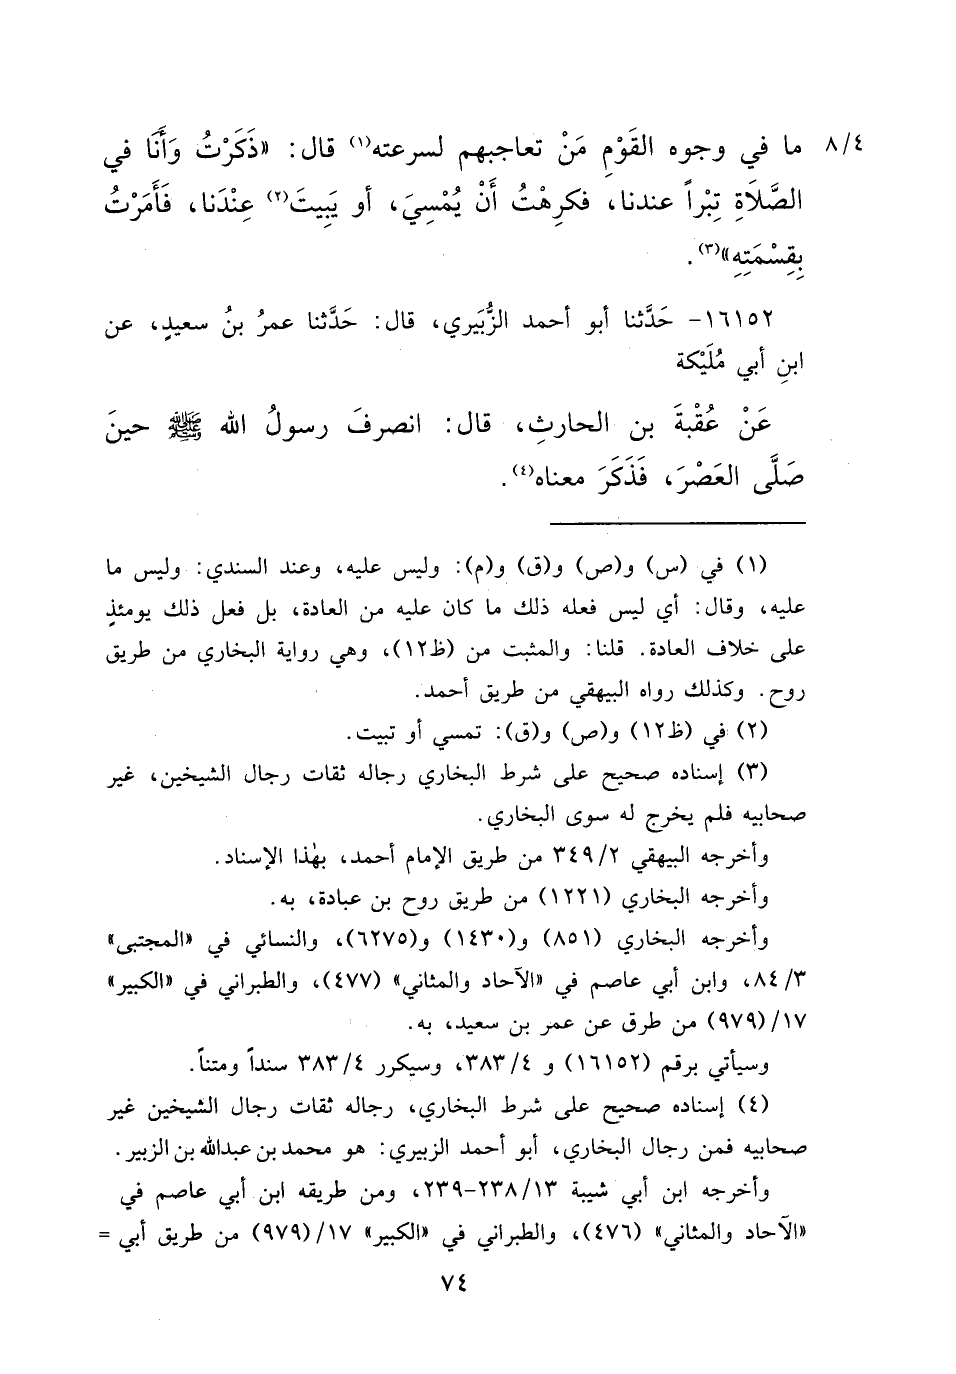 ٨/٤ ما في وجوه القَوْمِ مَنْ تعاجبهم لسرعته(١) قال: «ذَكَرْتُ وَأَنَا في
الصَّلَاةِ تِبْراً عندنا، فكرِهْتُ أَنْ يُمْسِيَ، أو يَبِيتَ(٢) عِنْدَنا، فَأَمَرْتُ
بِقِسْمَتِهِ»(٣).
١٦١٥٢- حَدَّثنا أبو أحمد الزُّبَيري، قال: حَدَّثنا عمرُ بنُ سعيدٍ، عن
ابنِ أبي مُلَيْكة
عَنْ عُقْبةَ بن الحارثِ، قال: انصرفَ رسولُ الله ﷺ حينَ
صَلَّى العَصْرَ، فَذَكَرَ معناه(٤).
(١) في (س) و(ص) و(ق) و(م): وليس عليه، وعند السندي: وليس ما
عليه، وقال: أي ليس فعله ذلك ما كان عليه من العادة، بل فعل ذلك يومئذٍ
على خلاف العادة. قلنا: والمثبت من (ظ١٢)، وهي رواية البخاري من طريق
روح. وكذلك رواه البيهقي من طريق أحمد.
(٢) في (ظ١٢) و(ص) و(ق): تمسي أو تبيت.
(٣) إسناده صحيح على شرط البخاري رجاله ثقات رجال الشيخين، غير
صحابيه فلم يخرج له سوى البخاري.
وأخرجه البيهقي ٣٤٩/٢ من طريق الإمام أحمد، بهٰذا الإسناد.
وأخرجه البخاري (١٢٢١) من طريق روح بن عبادة، به.
وأخرجه البخاري (٨٥١) و(١٤٣٠) و(٦٢٧٥)، والنسائي في «المجتبى»
٨٤/٣، وابن أبي عاصم في «الآحاد والمثاني» (٤٧٧)، والطبراني في «الكبير»
١٧/(٩٧٩) من طرق عن عمر بن سعيد، به.
وسيأتي برقم (١٦١٥٢) و ٣٨٣/٤، وسيكرر ٣٨٣/٤ سنداً ومتناً.
(٤) إسناده صحيح على شرط البخاري، رجاله ثقات رجال الشيخين غير
صحابيه فمن رجال البخاري، أبو أحمد الزبيري: هو محمد بن عبدالله بن الزبير.
وأخرجه ابن أبي شيبة ٢٣٨/١٣-٢٣٩، ومن طريقه ابن أبي عاصم في
«الآحاد والمثاني» (٤٧٦)، والطبراني في «الكبير» ١٧/(٩٧٩) من طريق أبي =
٧٤